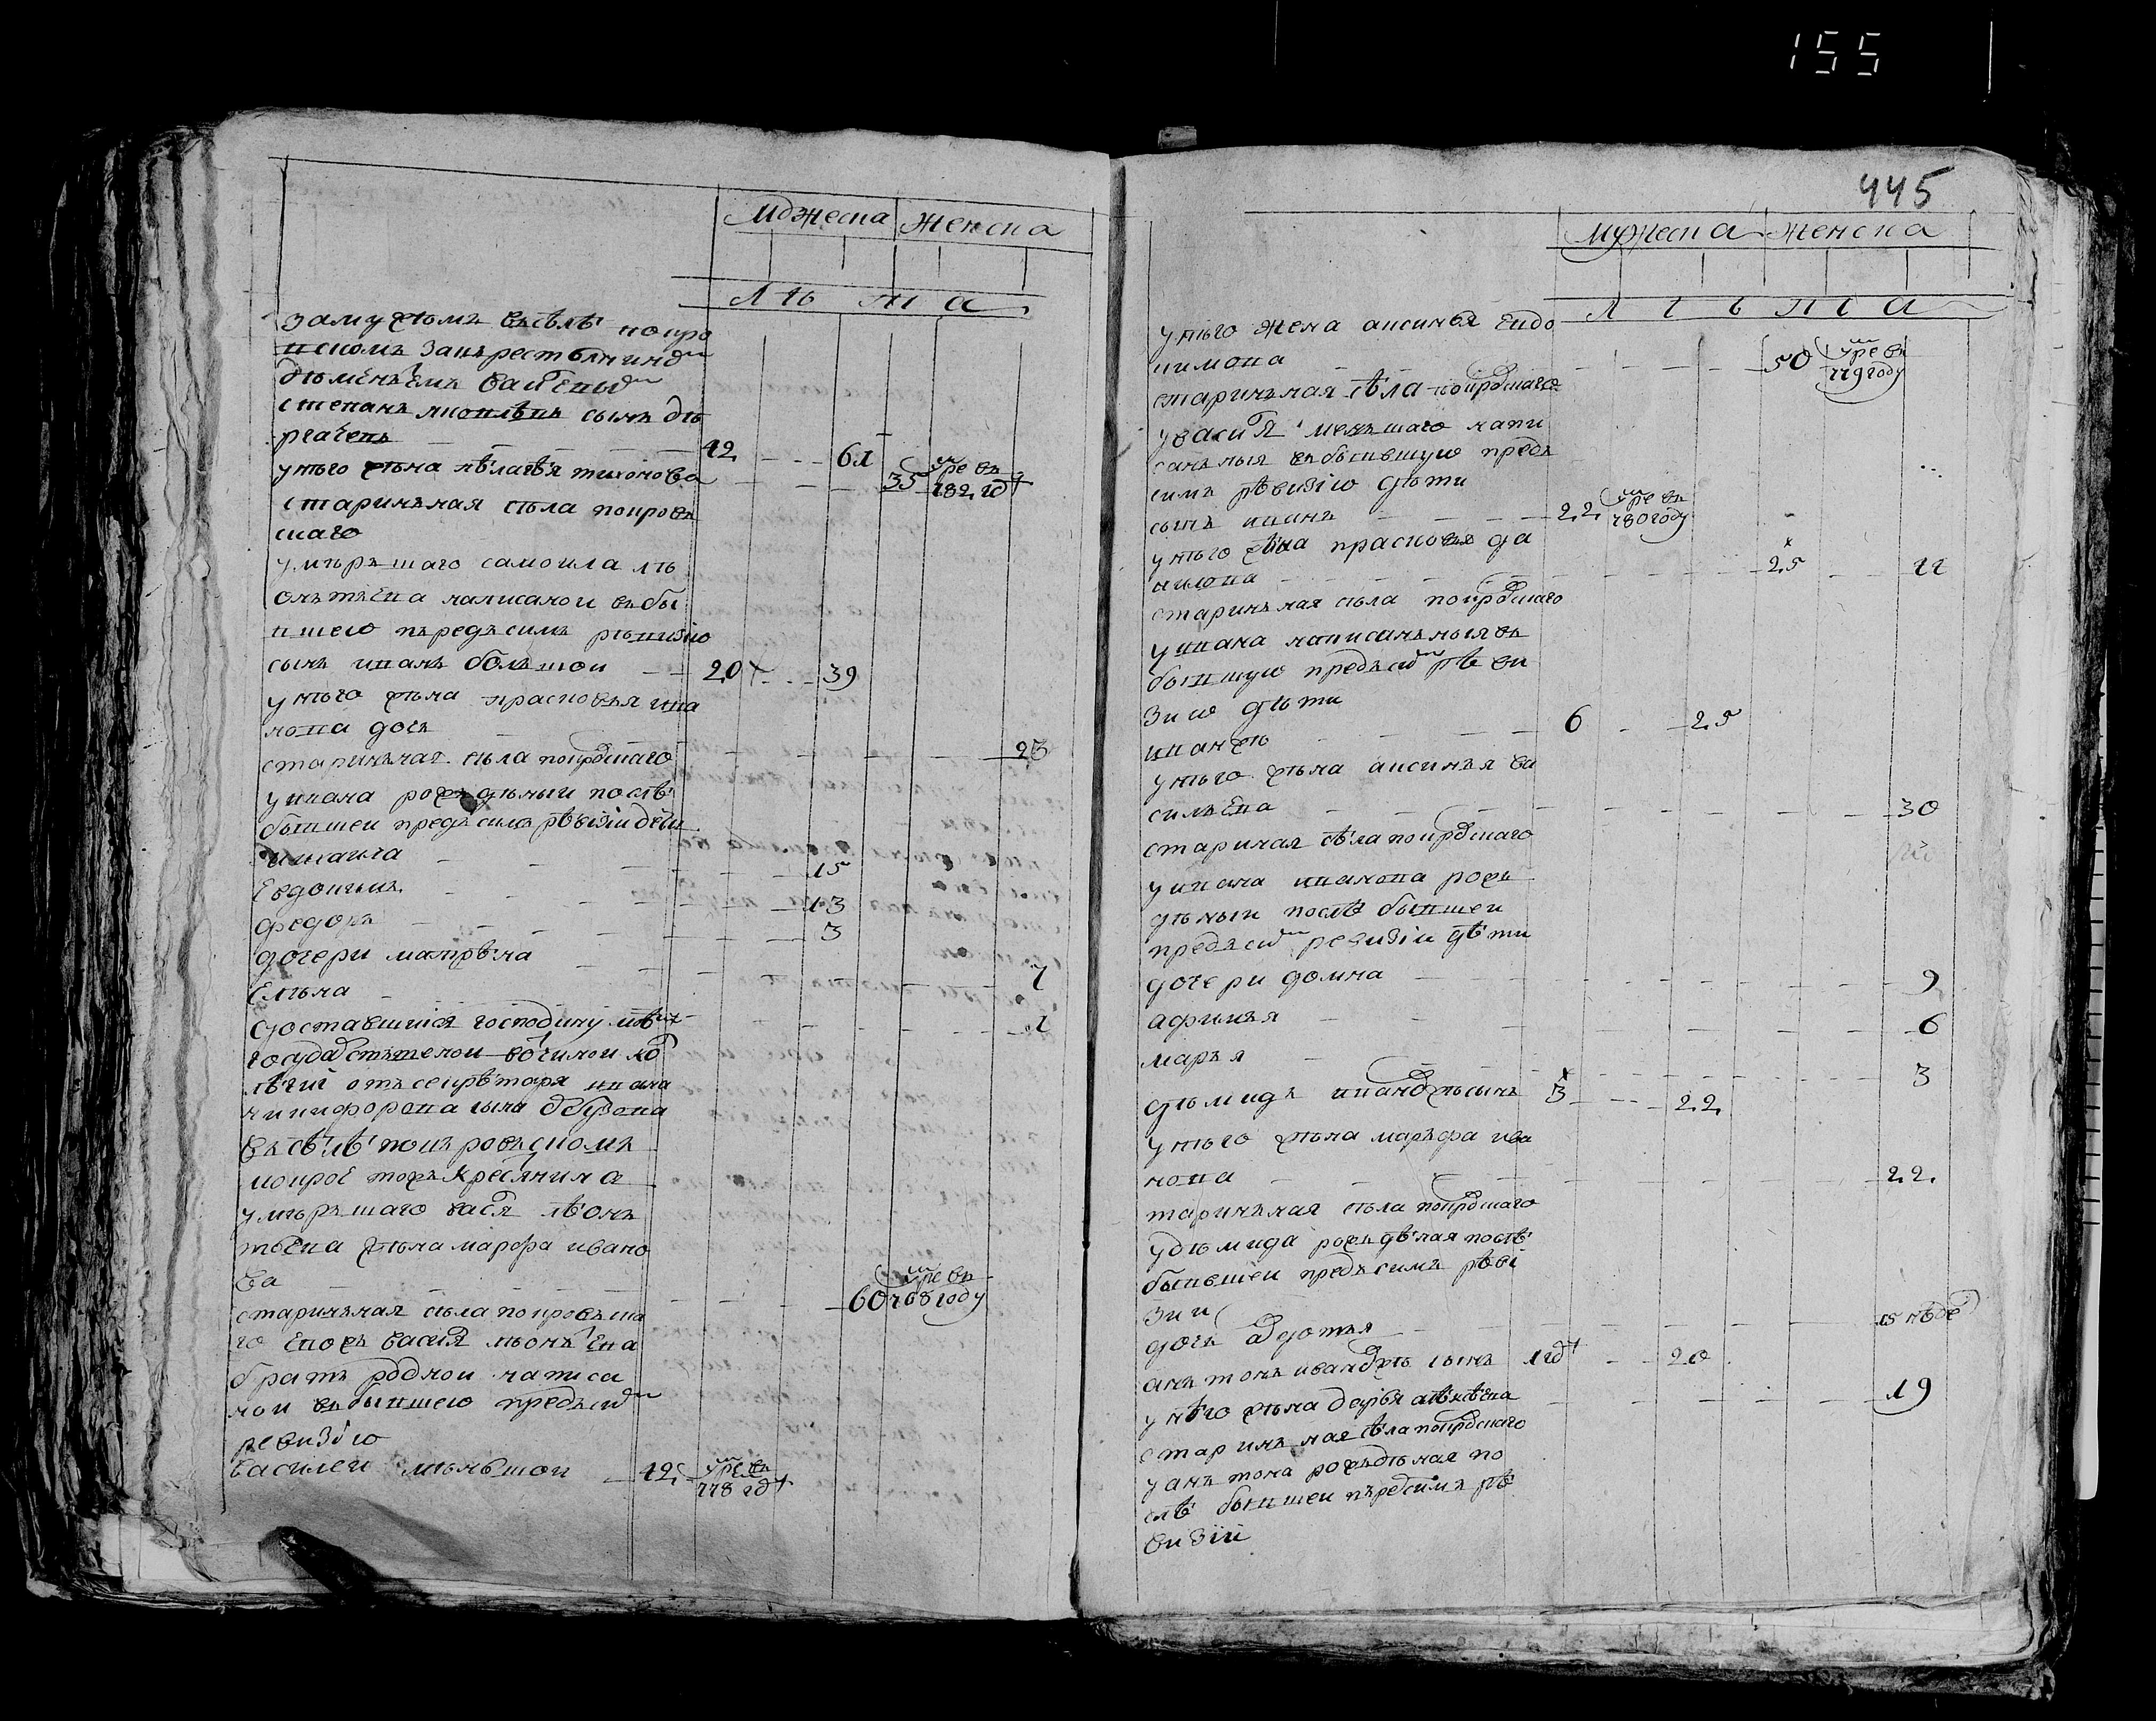 155
мужеска женска
лѣта
замужемъ въселѣ покро
вскомъ закрестьянином
степанъ яковлевъ сынъ
42 61
унего жена пелагея тихонова 35 умре въ 782 год
старинная села покровъ
скаго
умершаго самоила ле
онтьева написаной въбы
вшею передъ симъ ревизию
сынъ иванъ большои 20 39
унего жена прасковья ива
нова дочь
стариннаясела покровскаго 23
уивана рожденыи послѣ
бывшеи предъ симъ ревизии дети
михаила 15
Евдокимъ 13
федоръ 3
дочери матрена 7
Елена 1
доставшиися господину
государственои вотчинои кол
легии отъ секретаря ивана
никифорова сына
въ селѣ покъровъскомъ
покровъ тожъ кресянина
умершаго васил леонъ
тьева жена марфа ивано
ва 60 умре въ 768 году
старинъная села покровъска
го Евожъ васил леонтьева
братъ роднои написа
нои въбывшею предъ сим
ревизию
Василеи меньшои 42 умре въ 778 год
445
мужеска женска
лѣта
унего жена аксинья Евдо
кимова 50 умре въ 779 году
старинъная села покровскаго
увасил меньшаго напи
санъныя въбывшую предъ
симъ ревизию дети
сынъ иванъ 22 умре въ 780 году
унего жена прасковья да
нилова 25 11
старинъная села покровскаго
уивана написанъныя въ
бывшую предъ сим реви
зию дети
иванъ же 6 25
унего жена аксинья ва
сильева 30
стариная села покровскаго
уивана иванова рожъ
деныи послѣ бывшеи
предъ сим ревизии дѣти
дочери домна 9
афимья 6
марья 3
демидъ иванов же сынъ 3 22
унего жена марфа ива
нова 22
таринъная села покровскаго
удемида рожъденая послѣ
бывшеи предъ симъ реви
зии
дочь авдотья 15 недел
антонъ иванов же сынъ 1 год 20
унего жена дарья 19
старинъная села покровскаго
уантона рожъденая по
слѣ бывшеи передсимъ ре
визии